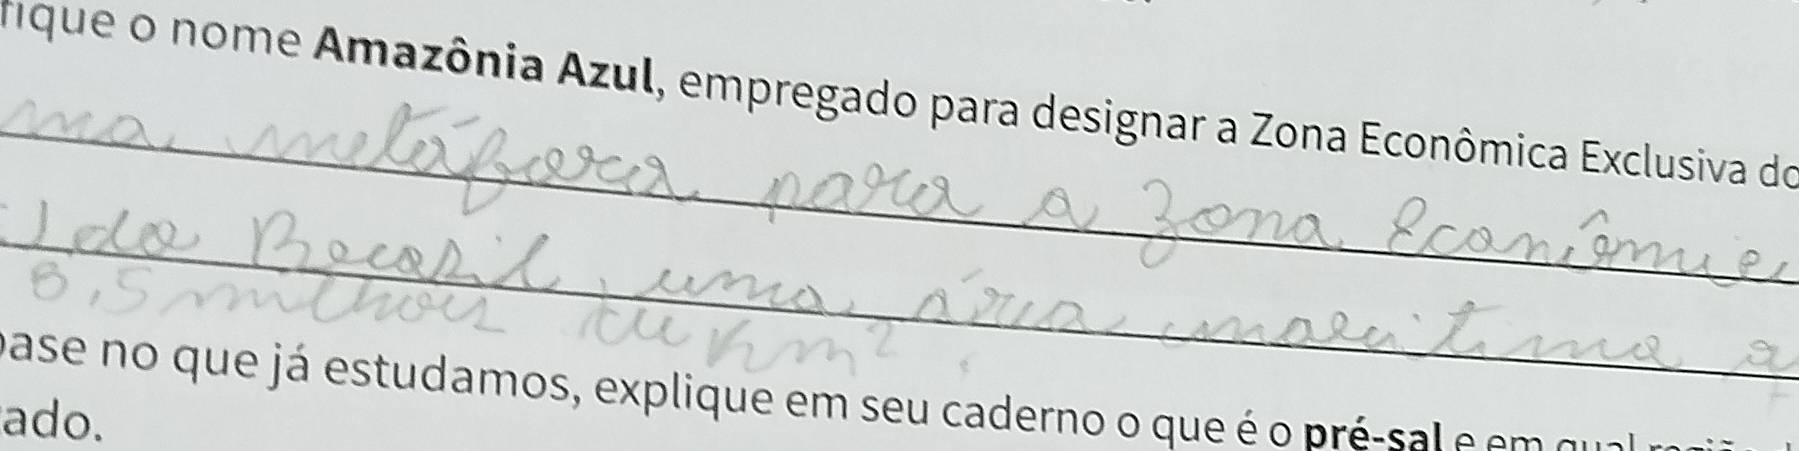 fique o nome Amazônia Azul, empregado para designar a Zona Econômica Exclusiva do
ma metáfora para a zona Econômic
l do Brasil, uma área marítima a
8,5 milhões de km².
base no que já estudamos, explique em seu caderno o que é o pré-sal e em qual
ado.